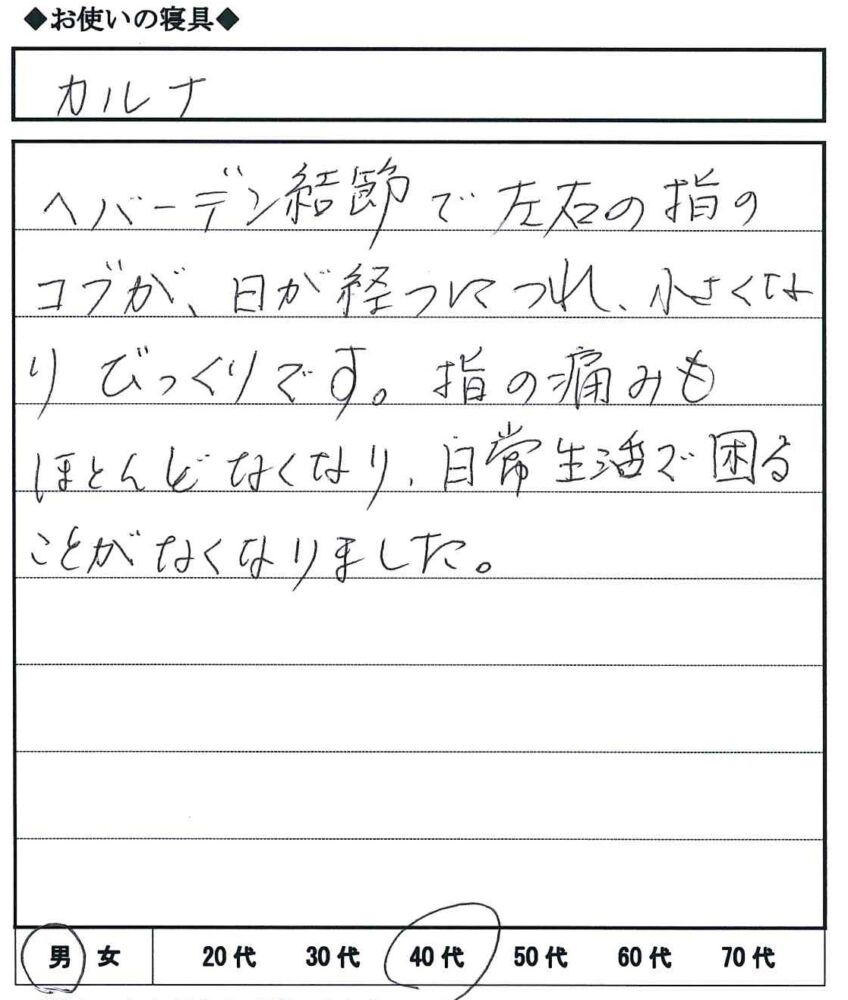 ◆お使いの寝具◆
カルナ
ヘバーデン結節で左右の指の
コブが、日が経つにつれ、小さくな
りびっくりです。指の痛みも
ほとんどなくなり、日常生活で困る
ことがなくなりました。
男 女 20代 30代 40代 50代 60代 70代